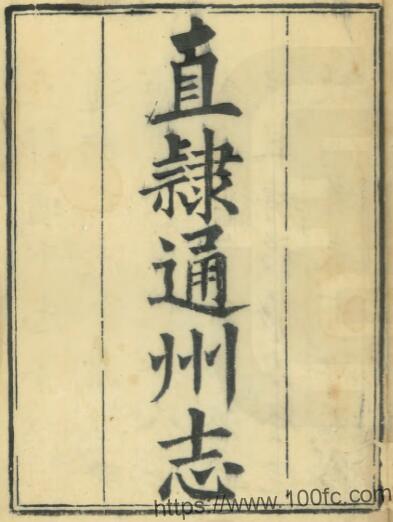 直隷通州志
https://www.100fc.com